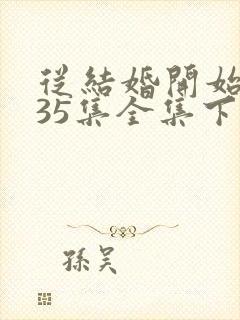 從結婚開始
35集全集下
孫吴